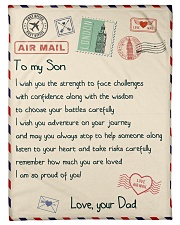 AIR MAIL
To my Son
I wish you the strength to face challenges
with confidence along with the wisdom
to choose your battles carefully
I wish you adventure on your journey
and may you always stop to help someone along
listen to your heart and take risks carefully
remember how much you are loved
I am so proud of you!
Love, your Dad